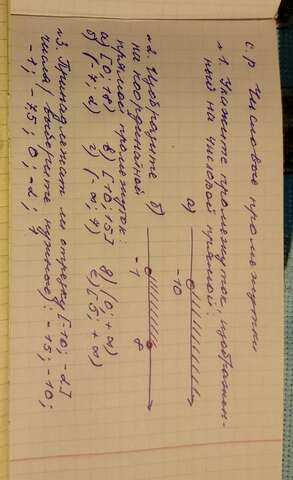 с. р Числовые промежутки
№1. Укажите промежуток, изображен-
ный на числовой прямой:
а) -10
б) -1 8
№2. Изобразите
на координатной
прямой промежуток:
а) [0; 18) в) [-10; 15] д) (0; +∞)
б) (-7; 2) г) (-∞; 7) е) [-5; +∞)
№3. Принадлежат ли отрезку [-10; -2]
числа (выберите нужное): -15; -10;
-1; -7,5; 0; -2;